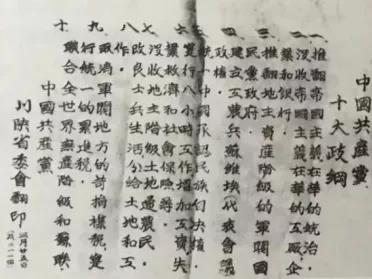 中國共產黨
十大政綱
一、推翻帝國主義在華的統治
二、沒收帝國主義在華的工廠、企
業和銀行。
三、推翻地主資產階級的軍閥國
民黨政府。
四、建立工農兵蘇維埃代表會議
政權。
五、統一中國承認民族自決權。
六、實行八小時工作增加工資失
業救濟和社會保險等。
七、沒收地主階級土地歸農民。
八、改良士兵生活分給土地和工
作。
九、取消軍閥地方的苛捐雜稅實
行統一的累進稅。
十、聯合全世界無產階級和蘇聯。
中國共產黨
川陝省委會翻印